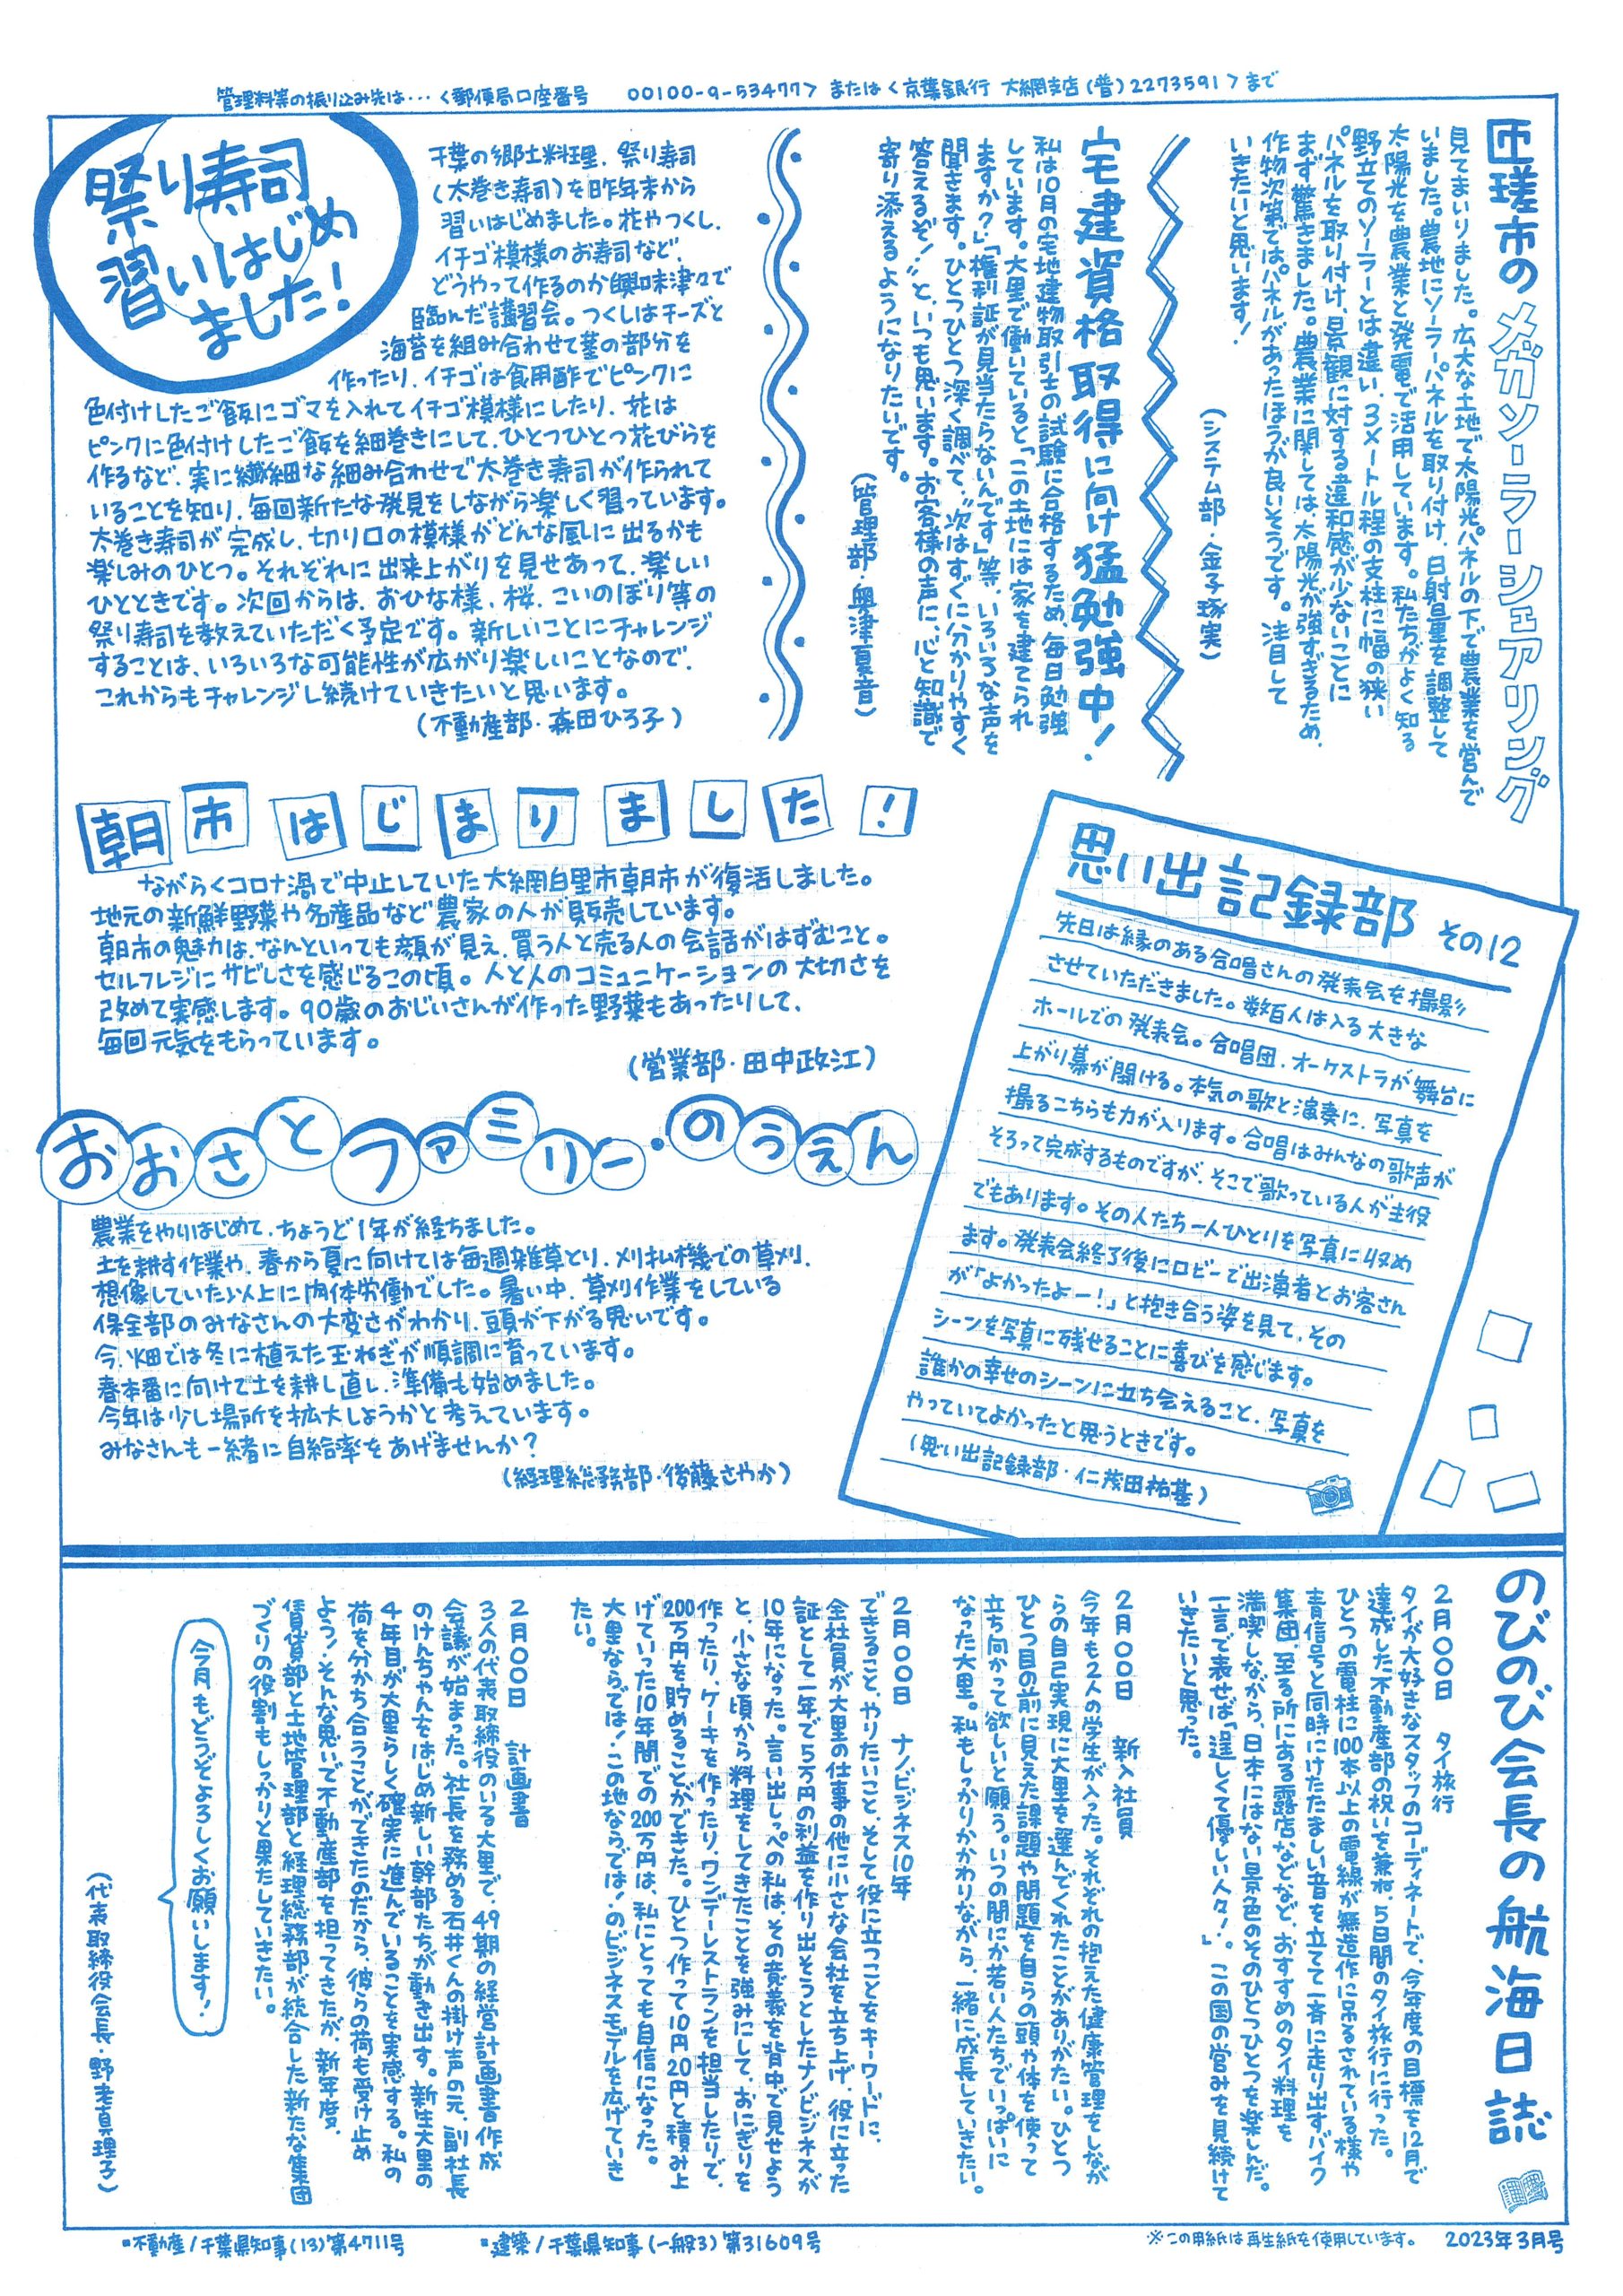 管理料等の振り込み先は・・・く郵便局口座番号　00100-9-534777＞ または＜京葉銀行 大網支店(普)2273591＞まで
匝瑳市のメガソーラーシェアリング
見てまいりました。広大な土地で太陽光パネルの下で農業を営んで
いました。農地にソーラーパネルを取り付け、日射量を調整して
太陽光を農業と発電で活用しています。私たちがよく知る
野立てのソーラーとは違い、3メートル程の支柱に幅の狭い
パネルを取り付け、景観に対する違和感が少ないことに
まず驚きました。農業に関しては太陽光が強すぎるため、
作物次第ではパネルがあったほうが良いそうです。注目して
いきたいと思います！
(システム部・金子琢実)
宅建資格取得に向け猛勉強中！
私は10月の宅地建物取引士の試験に合格するため、毎日勉強
しています。大里で働いていると「この土地には家を建てられ
ますか？」「権利証が見当たらないんです」等、いろいろな声を
聞きます。ひとつひとつ深く調べて、"次はすぐに分かりやすく
答えるぞ！"と、いつも思います。お客様の声に、心と知識で
寄り添えるようになりたいです。
(管理部・奥津夏音)
祭り寿司
習いはじめ
ました！
千葉の郷土料理、祭り寿司
(太巻き寿司)を昨年末から
習いはじめました。花やつくし、
イチゴ模様のお寿司など、
どうやって作るのか興味津々で
臨んだ講習会。つくしはチーズと
海苔を組み合わせて茎の部分を
作ったり、イチゴは食用酢でピンクに
色付けしたご飯にゴマを入れてイチゴ模様にしたり、花は
ピンクに色付けしたご飯を細巻きにして、ひとつひとつ花びらを
作るなど、実に繊細な細み合わせで太巻き寿司が作られて
いることを知り、毎回新たな発見をしながら楽しく習っています。
太巻き寿司が完成し、切り口の模様がどんな風に出るかも
楽しみのひとつ。それぞれに出来上がりを見せあって、楽しい
ひとときです。次回からは、おひな様、桜、こいのぼり等の
祭り寿司を教えていただく予定です。新しいことにチャレンジ
することは、いろいろな可能性が広がり楽しいことなので、
これからもチャレンジし続けていきたいと思います。
(不動産部・森田ひろ子)
朝市はじまりました！
ながらくコロナ渦で中止していた大網白里市朝市が復活しました。
地元の新鮮野菜や名産品など農家の人が販売しています。
朝市の魅力は、なんといっても顔が見え、買う人と売る人の会話がはずむこと。
セルフレジにサビしさを感じるこの頃。人と人のコミュニケーションの大切さを
改めて実感します。90歳のおじいさんが作った野菜もあったりして、
毎回元気をもらっています。
(営業部・田中政江)
おおさとファミリー・のうえん
農業をやりはじめて、ちょうど1年が経ちました。
土を耕す作業や、春から夏に向けては毎週雑草とり、刈払機での草刈、
想像していた以上に肉体労働でした。暑い中、草刈作業をしている
保全部のみなさんの大変さがわかり、頭が下がる思いです。
今、畑では冬に植えた玉ねぎが順調に育っています。
春本番に向けて土を耕し直し、準備も始めました。
今年は少し場所を拡大しようかと考えています。
みなさんも一緒に自給率をあげませんか？
(経理総務部・後藤さやか)
思い出記録部 その12
先日は縁のある合唱さんの発表会を撮影
させていただきました。数百人は入る大きな
ホールでの発表会。合唱団、オーケストラが舞台に
上がり幕が開ける。本気の歌と演奏に、写真を
撮るこちらも力が入ります。合唱はみんなの歌声が
そろって完成するものですが、そこで歌っている人が主役
でもあります。その人たち一人ひとりを写真に収め
ます。発表会終了後にロビーで出演者とお客さん
が「よかったよー！」と抱き合う姿を見て、その
シーンを写真に残せることに喜びを感じます。
誰かの幸せのシーンに立ち会えること、写真を
やっていてよかったと思うときです。
(思い出記録部・仁茂田祐基)
のびのび会長の航海日誌
2月〇〇日　タイ旅行
タイが大好きなスタッフのコーディネートで、今年度の目標を12月で
達成した不動産部の祝いを兼ね、5日間のタイ旅行に行った。
ひとつの電柱に100本以上の電線が無造作に吊るされている様や
青信号と同時にけたたましい音を立てて一斉に走り出すバイク
集団、至る所にある露店などなど、おすすめのタイ料理を
満喫しながら、日本にはない景色のそのひとつひとつを楽しんだ。
一言で表せば「逞しくて優しい人々！」。この国の営みを見続けて
いきたいと思った。
2月〇〇日　新入社員
今年も2人の学生が入った。それぞれの抱えた健康管理をしなが
らの自己実現に大里を選んでくれたことがありがたい。ひとつ
ひとつ目の前に見えた課題や問題を自らの頭や体を使って
立ち向かって欲しいと願う。いつの間にか若い人たちでいっぱいに
なった大里。私もしっかりかかわりながら、一緒に成長していきたい。
2月〇〇日　ナノビジネス10年
できること、やりたいこと、そして役に立つことをキーワードに、
全社員が大里の仕事の他に小さな会社を立ち上げ、役に立った
証として一年で5万円の利益を作り出そうとしたナノビジネスが
10年になった。言い出しっぺの私は、その意義を背中で見せよう
と、小さな頃から料理をしてきたことを強みにして、おにぎりを
作ったり、ケーキを作ったり、ワンデーレストランを担当したりで、
200万円を貯めることができた。ひとつ作って10円20円と積み上
げていった10年間での200万円は、私にとっても自信になった。
大里ならでは！この地ならでは！のビジネスモデルを広げていき
たい。
2月〇〇日　計画書
3人の代表取締役のいる大里で、49期の経営計画書作成
会議が始まった。社長を務める石井くんの掛け声の元、副社長
のけんちゃんをはじめ新しい幹部たちが動き出す。新生大里の
4年目が大里らしく確実に進んでいることを実感する。私の
荷を分かち合うことができたのだから、彼らの荷も受け止め
よう！そんな思いで不動産部を担ってきたが、新年度、
賃貸部と土地管理部と経理総務部が統合した新たな集団
づくりの役割もしっかりと果たしていきたい。
今月もどうぞよろしくお願いします！
(代表取締役会長・野老真理子)
▪不動産/千葉県知事(13)第4711号
▪建築/千葉県知事(一般3)第31609号
※この用紙は再生紙を使用しています。
2023年3月号